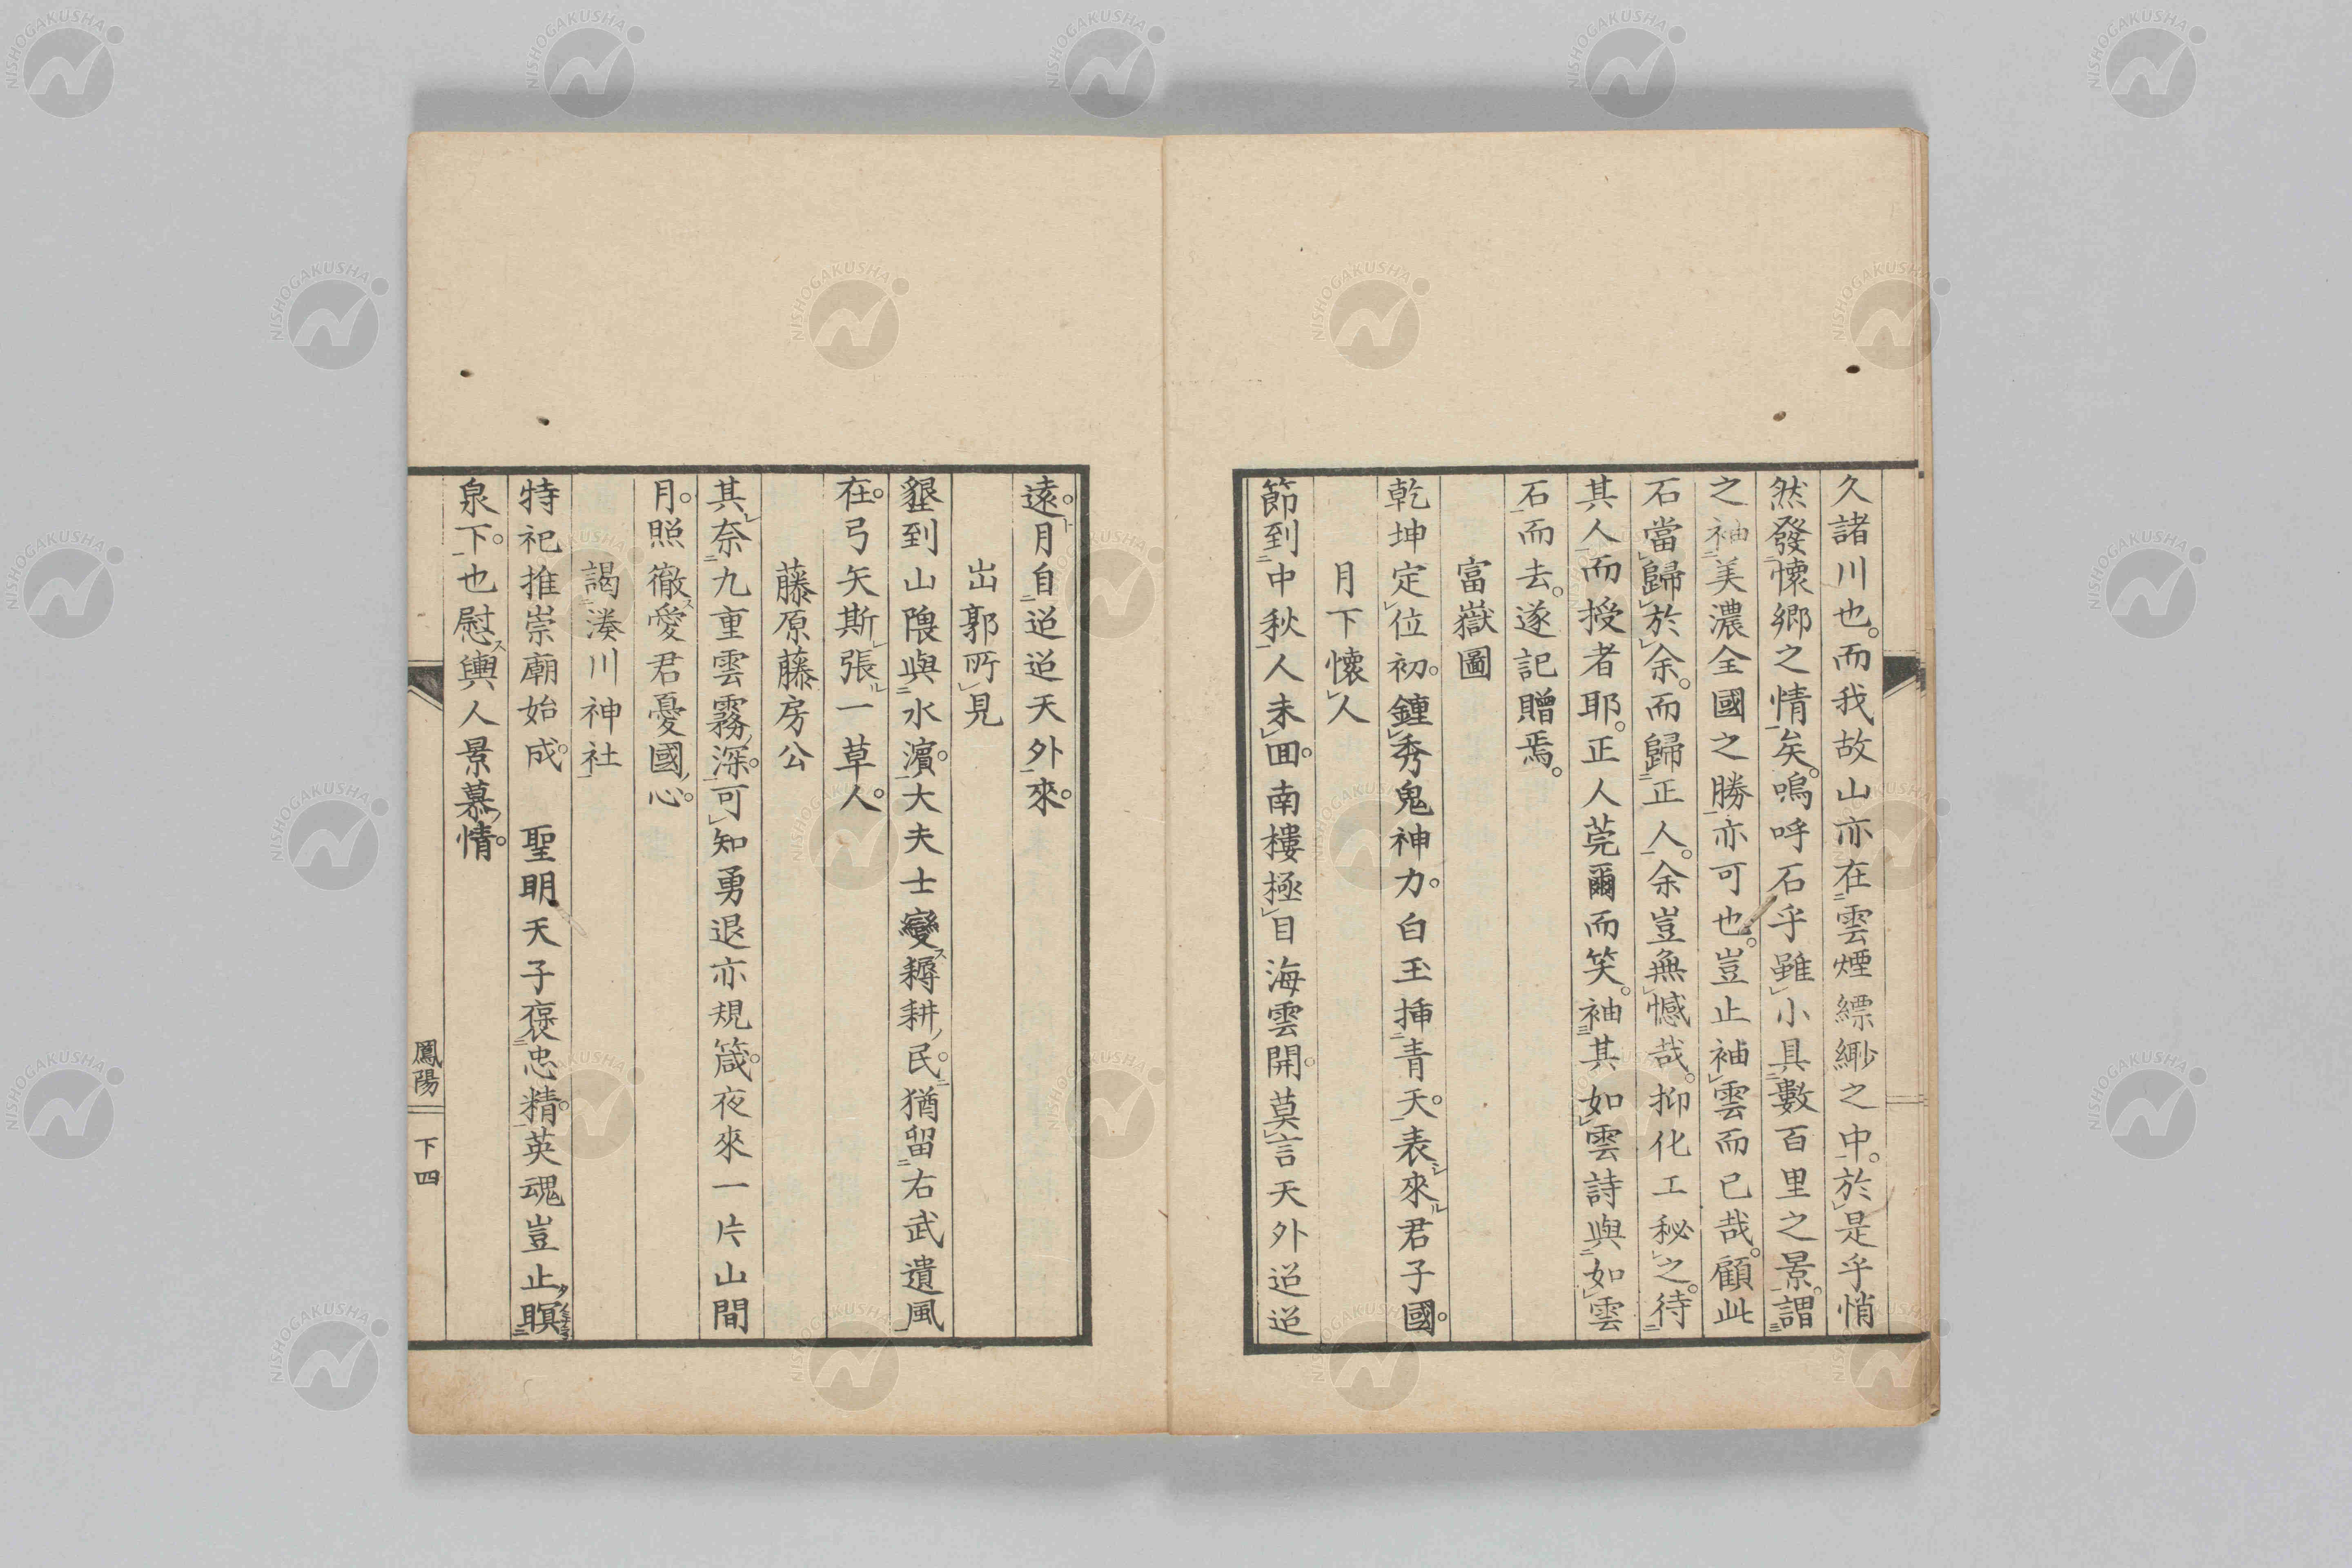 久諸川也。而我故山亦在雲煙縹緲之中。於是乎悄
然發懷鄉之情矣。嗚呼石乎雖小具數百里之景。謂
之袖美濃全國之勝亦可也。豈止袖雲而已哉。顧此
石當歸於余。而歸正人。余豈無憾哉。抑化工秘之。待
其人而授者耶。正人莞爾而笑。袖其如雲詩與如雲
石而去。遂記贈焉。
富嶽圖
乾坤定位初。鍾秀鬼神力。白玉挿青天。天表來君子國。
月下懷人
節到中秋人未囬。南樓極目海雲開。莫言天外迢迢
遠。月自迢迢天外來。
出郭所見
墾到山隈與水濱。大夫士變耨耕民。猶留右武遺風
在。弓矢斯張一草人。
藤原藤房公
其奈九重雲霧深。可知勇退亦規箴。夜來一片山間
月。照徹愛君憂國心。
謁湊川神社
特祀推崇廟始成。 聖明天子褒忠精。英魂豈止瞑
泉下。也慰輿人景慕情。
鳳陽 下四
NISHOGAKUSHA